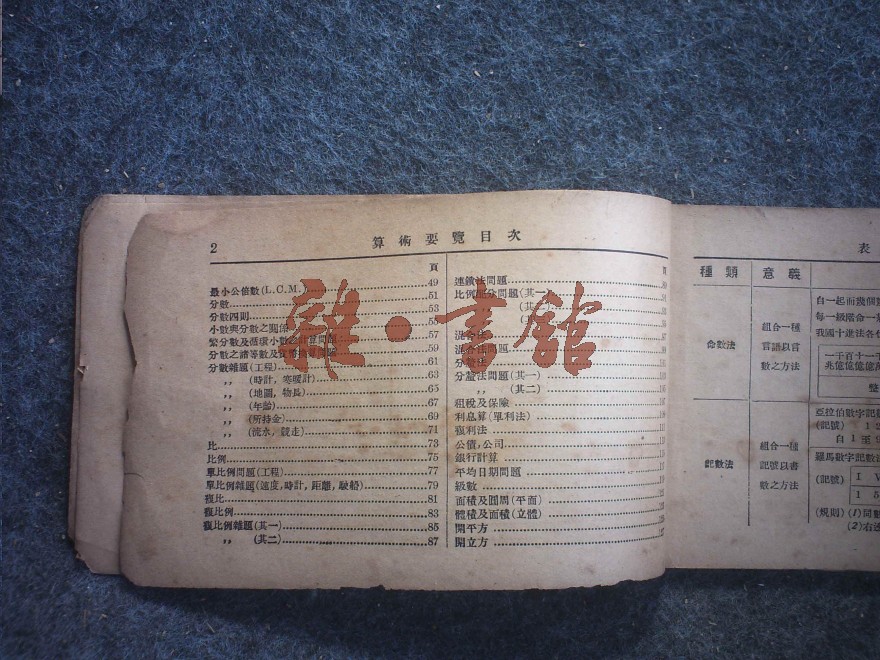 2
算術要覽目次
頁
最小公倍數(L.C.M.) 49
分數 51
分數四則 53
小數與分數之關係 55
繁分數及循環小數之計算問題 57
分數之諸等數及 59
分數雜題(工程) 61
,, (時計,寒暖計) 63
,, (地圖,物長) 65
,, (年齡) 67
,, (所持金) 69
,, (流水,競走) 71
比 73
比例 75
單比例問題(工程) 77
單比例雜題(速度,時計,距離,駛船) 79
複比 81
複比例 83
複比例雜題(其一) 85
,, (其二) 87
頁
連鎖法問題 89
比例配分問題(其一) 91
混合法
混合法問題 99
分釐法
分釐法問題(其一)
,, (其二)
租稅及保險 107
利息算(單利法)
複利法
公債,公司
銀行計算
平均日期問題
級數
面積及圓周(平面)
體積及面積(立體)
開平方
開立方 127
雜·書館
表
種類 意義
命數法
組合一種
言語以言
數之方法
自一起而幾個
每一級階合一
我國十進法各位
一千百十一
兆億億億億
整
記數法
組合一種
記號以書
數之方法
亞拉伯數字記
(記號) 1 2
自 1 至
羅馬數字記數法
(記號)
I V
1 5
(規則) (1)同
(2)右